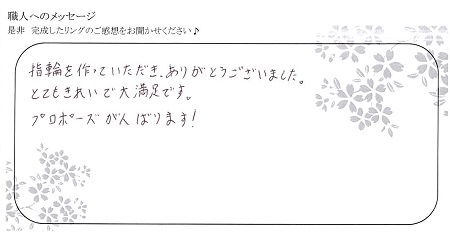 職人へのメッセージ
是非 完成したリングのご感想をお聞かせください♪
指輪を作っていただき、ありがとうございました。
とてもきれいで大満足です。
プロポーズがんばります!